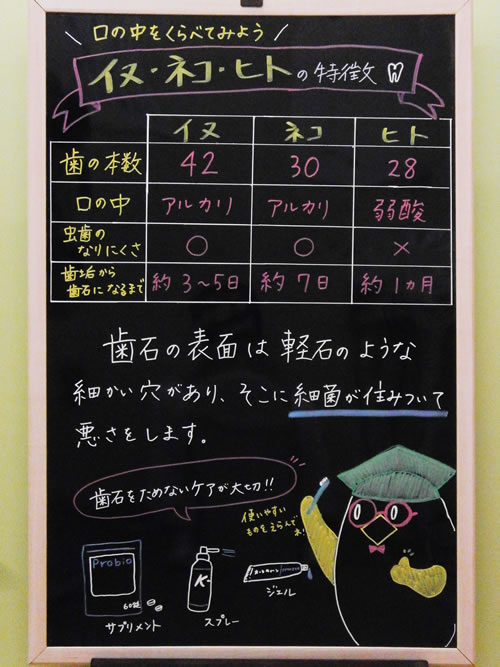 口の中をくらべてみよう
イヌ・ネコ・ヒトの特徴
イヌ ネコ ヒト
歯の本数 42 30 28
口の中 アルカリ アルカリ 弱酸
虫歯の
なりにくさ ○ ○ ×
歯垢から
歯石になるまで 約3~5日 約7日 約1ヵ月
歯石の表面は軽石のような
細かい穴があり、そこに細菌が住みついて
悪さをします。
歯石をためないケアが大切!!
使いやすい
ものをえらんで
ネ!
Probio
60錠
サプリメント
K-
スプレー
ジェル